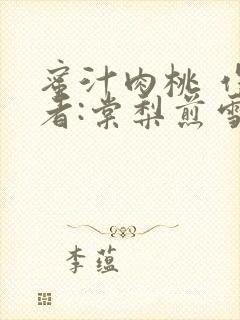 蜜汁肉桃
者:棠梨煎雪
李蕴